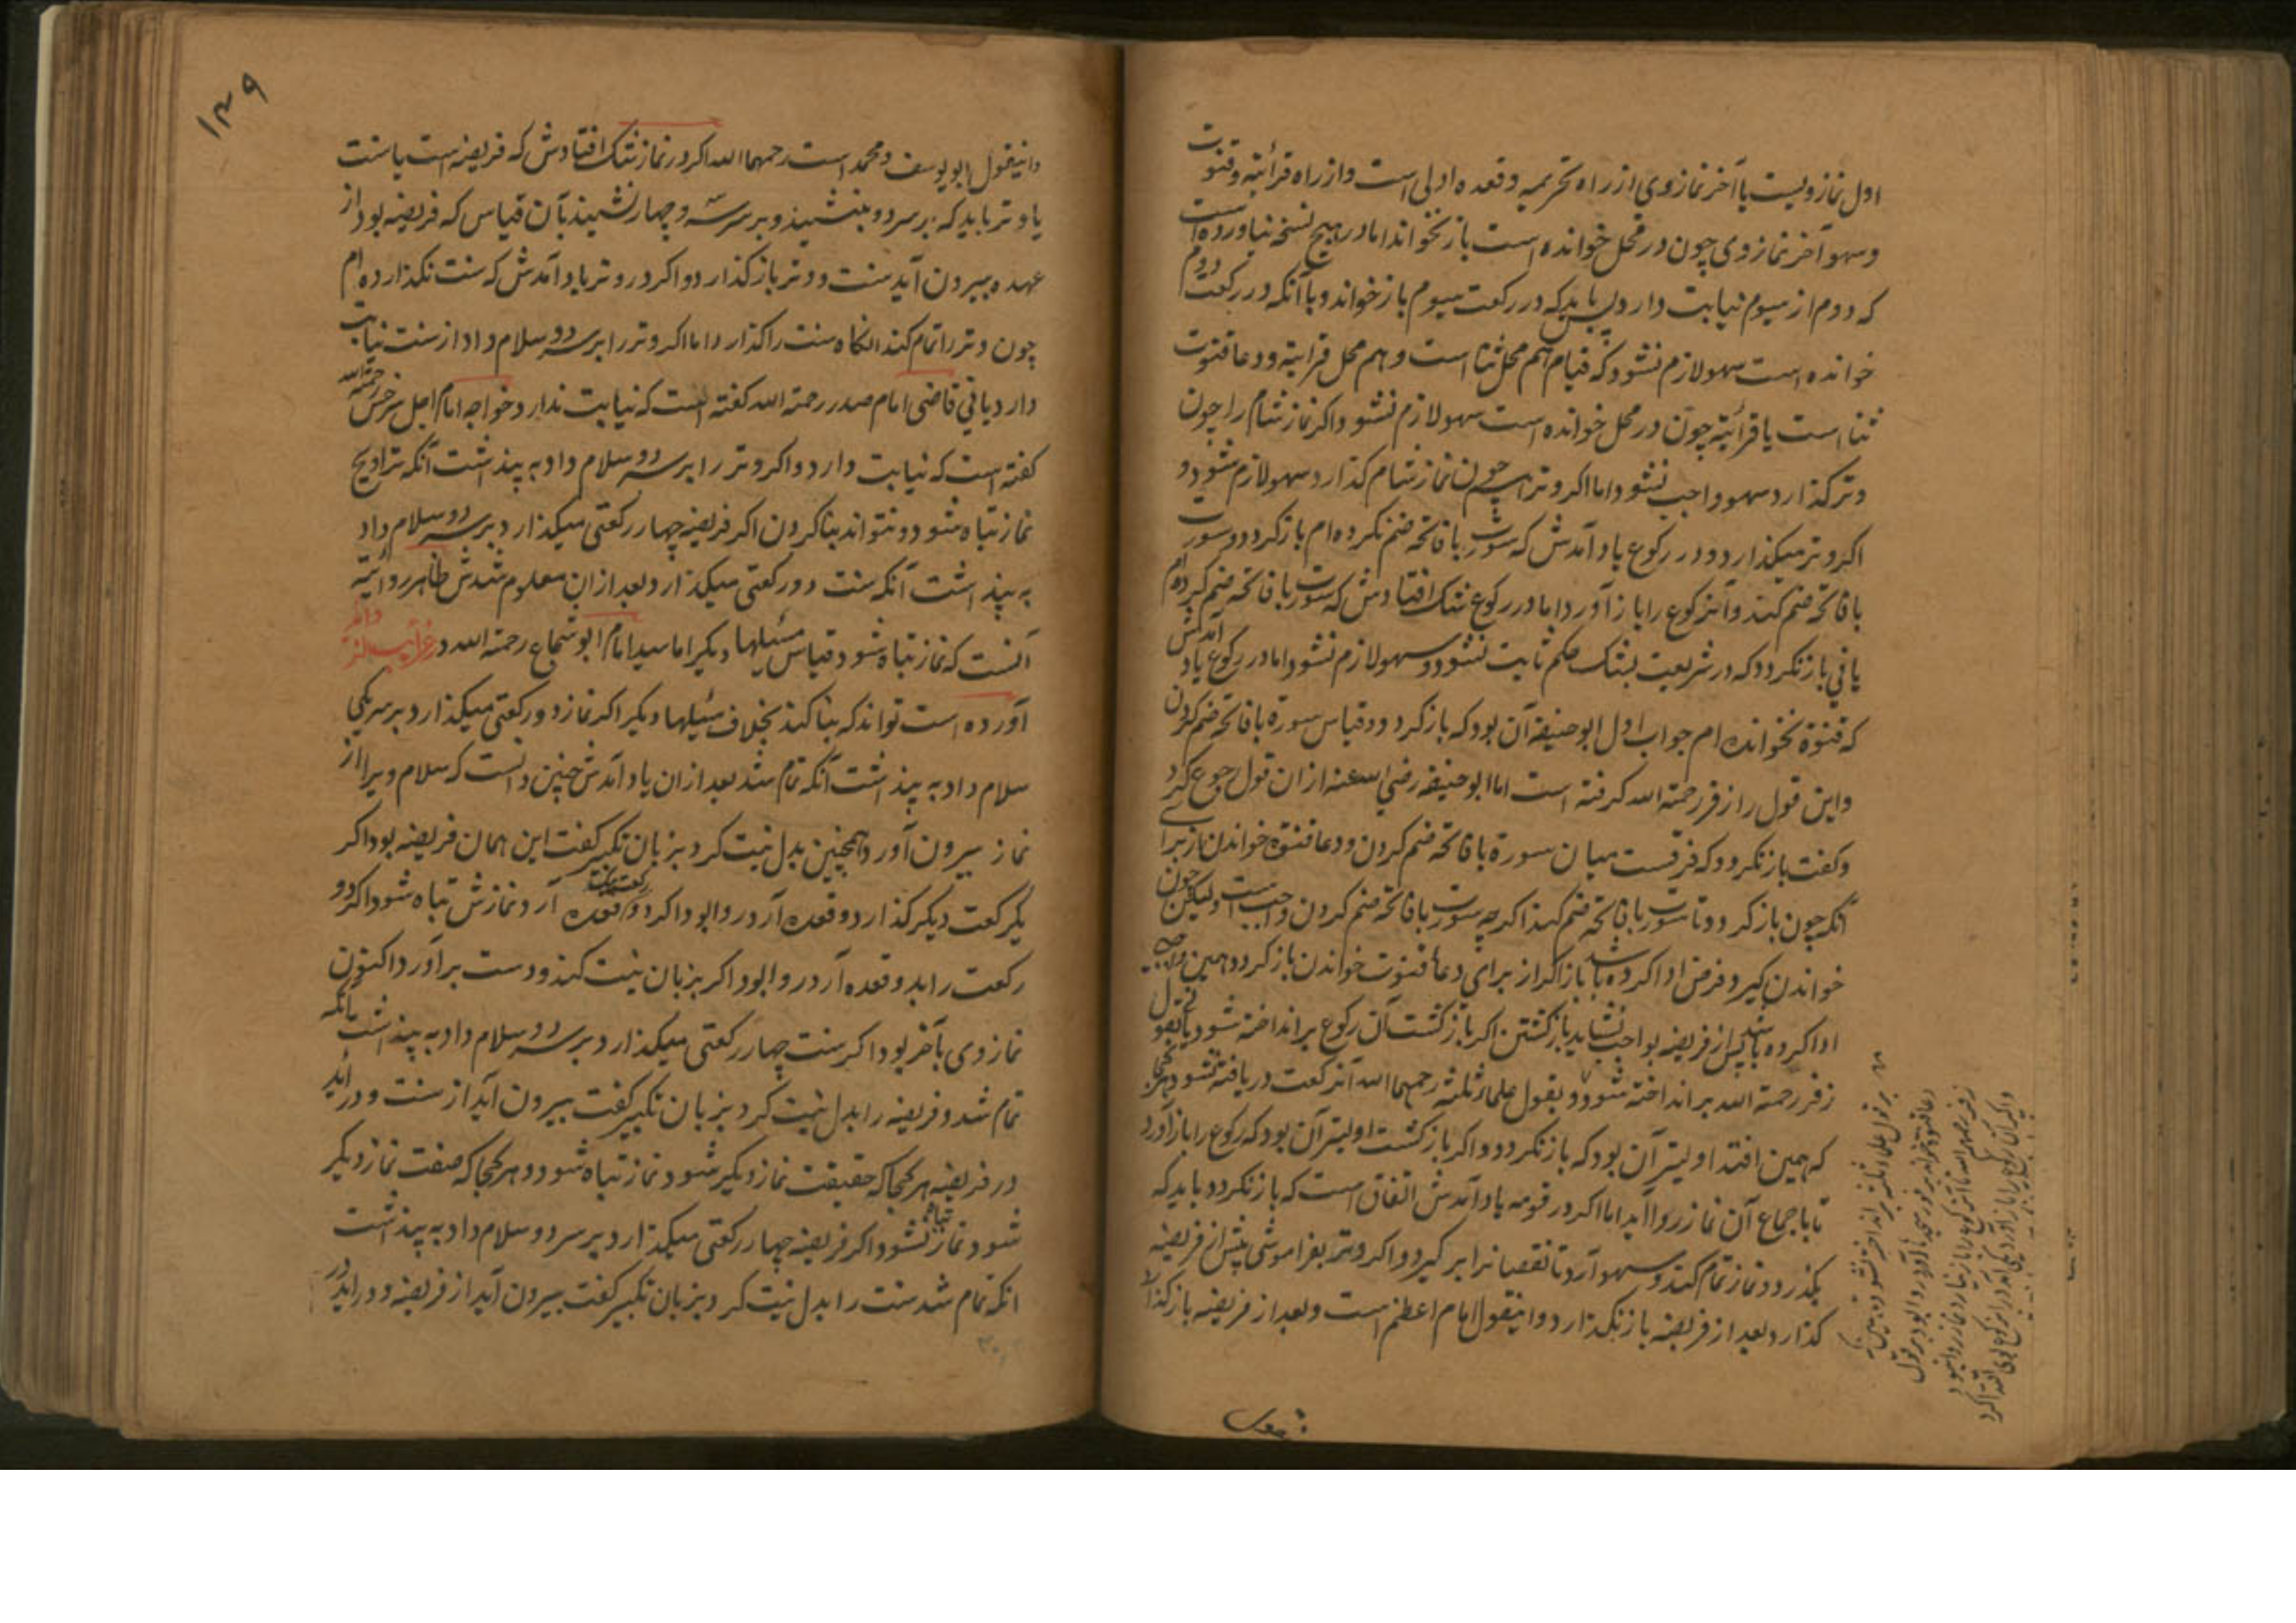 اول نماز ویست یا آخر نماز وی از راه تحریمیه و قعده اولی است و از راه قرأتیه و قنوت
و سهو آخر نماز وی چون در محل خوانده است باز نخواند اما در هیچ نسخه نیاورده است
که دوم از سیوم نیابت دارد پس باید که در رکعت سیوم باز خواند و با آنکه در رکعت دوم
خوانده است سهو لازم نشود که قیام هم محل ثنا است و هم محل قرایته و دعا قنوت
ثنا است یا قرأئته چون در محل خوانده است سهو لازم نشود و اکر نماز شام را چون
وتر کذارد سهو واجب نشود اما اکر وتر را چون نماز شام کذارد سهو لازم شود و
اکر وتر میکذارد و در رکوع یاد آمدش که سورت با فاتحه ضم نکرده ام باز کردد و سورت
با فاتحه ضم کند و آنرکوع را باز آورد اما در رکوع شک افتادش که سورت با فاتحه ضم کرده ام
یا نی باز نکردد که در شریعت بشک حکم ثابت نشود و سهو لازم نشود اما در رکوع یاد آمدش
که قنوة نخوانده ام جواب اول ابو حنیفه آن بود که باز کردد و قیاس سورة با فاتحه ضم کردن
و این قول را زفر رحمته الله کرفته است اما ابو حنیفه رضی الله عنه از ان قول رجوع کرد
و کفت باز نکردد که فرقست میان سورة با فاتحه ضم کردن و دعا قنوة خواندن از برای
آنکه چون باز کردد تا سورت با فاتحه ضم کند اکرچه سورت با فاتحه ضم کردن واجب است ولیکن چون
خواندن کیرد فرض ادا کرده باشد باز اکر از برای دعا قنوت خواندن باز کردد همین واجب
ادا کرده باشد پس از فریضه بواجب نشاید باز کشتن اکر باز کشت آن رکوع برانداخته شود یا نی بقول
زفر رحمته الله برانداخته شود و بقول علما ثلثه رحمهما الله آنرکعت دریافته نشود هر کجا
که همین افتد اولیتر آن بود که باز نکردد و اکر باز کشت اولیتر آن بود که رکوع را باز آورد
تا با جماع آن نماز روا آید اما اکر در قومه یاد آمدش اتفاق است که باز نکردد باید که
بکذرد و نماز تمام کند و سهو آرد تا نقصانرا بر کیرد و اکر وتر بفراموشی پیش از فریضه
کذارد بعد از فریضه باز نکذارد و اینقول امام اعظم است و بعد از فریضه باز کذارد
۱۴۹
و اینقول ابو یوسف و محمد است رحمهما الله اکر در نماز شک افتادش که فریضه است یا سنت
یا وتر باید که بر سر دو بنشیند و بر سر سه و چهار نشیند بآن قیاس که فریضه بود از
عهده بیرون آید سنت و وتر باز کذارد و اکر در وتر یاد آمدش که سنت نکذارده ام
چون وتر را تمام کند انکاه سنت را کذارد اما اکر وتر را بر سر دو سلام داد از سنت نیابت
دارد یا نی قاضی امام صدر رحمته الله کفته است که نیابت ندارد و خواجه امام اجل سرخسی رحمته الله
کفته است که نیابت دارد و اکر وتر را بر سر دو سلام داد به پنداشت آنکه تراویح
نماز تباه شود و نتواند بنا کردن اکر فریضه چهار رکعتی میکذارد بر سر دو سلام داد
به پنداشت آنکه سنت دو رکعتی میکذارد بعد از ان معلوم شدش ظاهر روائیته
آنست که نماز تباه شود قیاس مسئلها دیکر اما سید امام ابو شجاع رحمته الله در غرایب
آورده است تواند که بنا کند بخلاف مسئلها دیکر اکر نماز دو رکعتی میکذارد بر سر یکی
سلام داد به پنداشت آنکه تمام شد بعد از ان یاد آمدش چنین دانست که سلام ویرا از
نماز بیرون آورد همچنین بدل نیت کرد بزبان تکبیر کفت این همان فریضه بود اکر
یکرکعت دیکر کذارد و قعده آرد روا بود اکر دو رکعت قعده آرد نمازش تباه شود اکر دو
رکعت را بد و قعده آرد روا بود اکر بزبان نیت کند و دست برآورد اکنون
نماز وی بآخر بود اکر سنت چهار رکعتی میکذارد بر سر دو سلام داد به پنداشت آنکه
تمام شد و فریضه را بدل نیت کرد بزبان تکبیر کفت بیرون آید از سنت و در اید
در فریضه هر کجا که حقیقت نماز دیکر شود نماز تباه شود و هر کجا که صفت نماز دیکر
شود نماز تباه نشود اکر فریضه چهار رکعتی میکذارد بر سر دو سلام داد به پنداشت
انکه تمام شد سنت را بدل نیت کرد بزبان تکبیر کفت بیرون آید از فریضه و در اید در